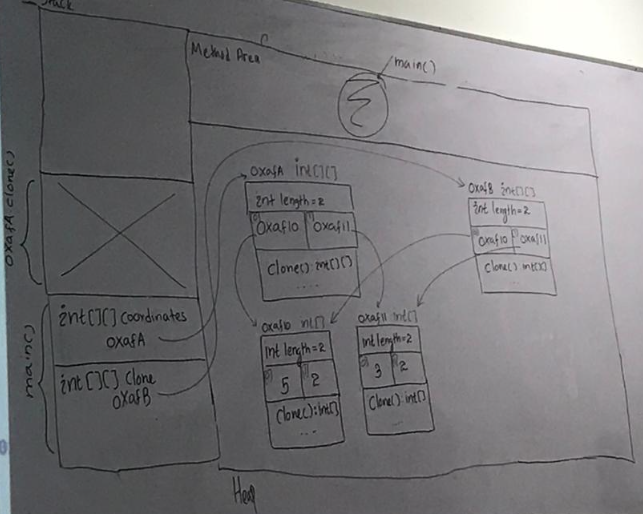 Stack
Method Area
main()
0xafA clone()
main()
int[][] coordinates
0xafA
int[][] Clone
0xafB
0xafA int[][]
int length=2
0 0xaf10 1 0xaf11
clone(): int[][]
...
0xafB int[][]
int length=2
0 0xaf10 1 0xaf11
clone(): int[][]
...
0xaf10 int[]
int length=2
0 5 1 2
Clone(): int[]
...
0xaf11 int[]
int length=2
0 3 1 2
Clone(): int[]
...
Heap